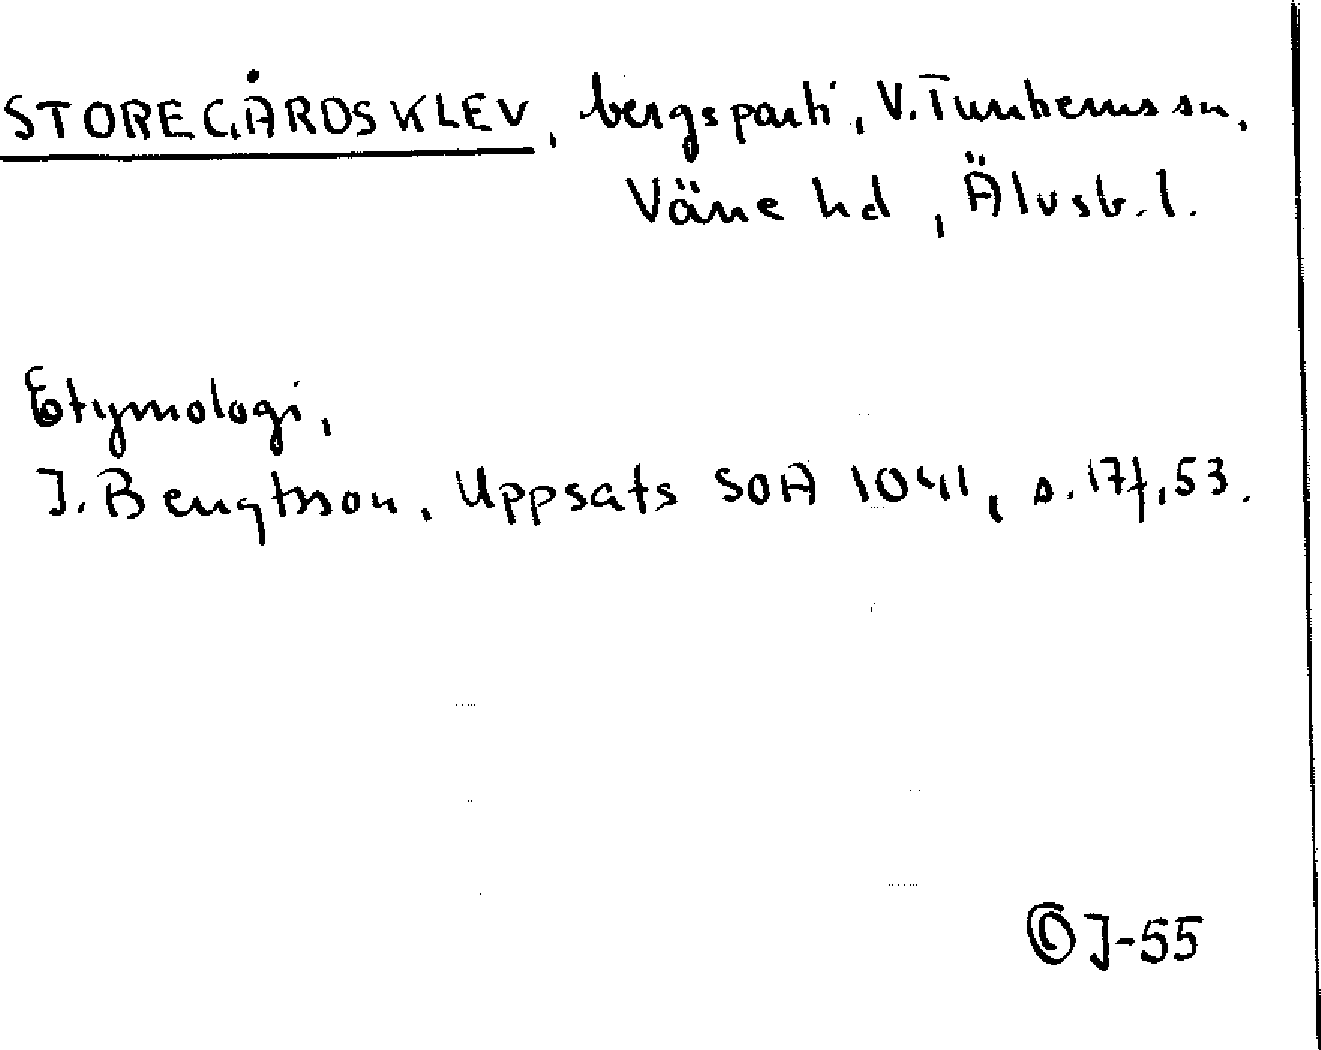 STOREGÅRDSKLEV, bergsparti, V. Tunhems sn,
Väne hd, Älvsb. l.
Etymologi,
J. Bengtsson, Uppsats SOA 1041, s. 17f, 53.
ⒸJ-55